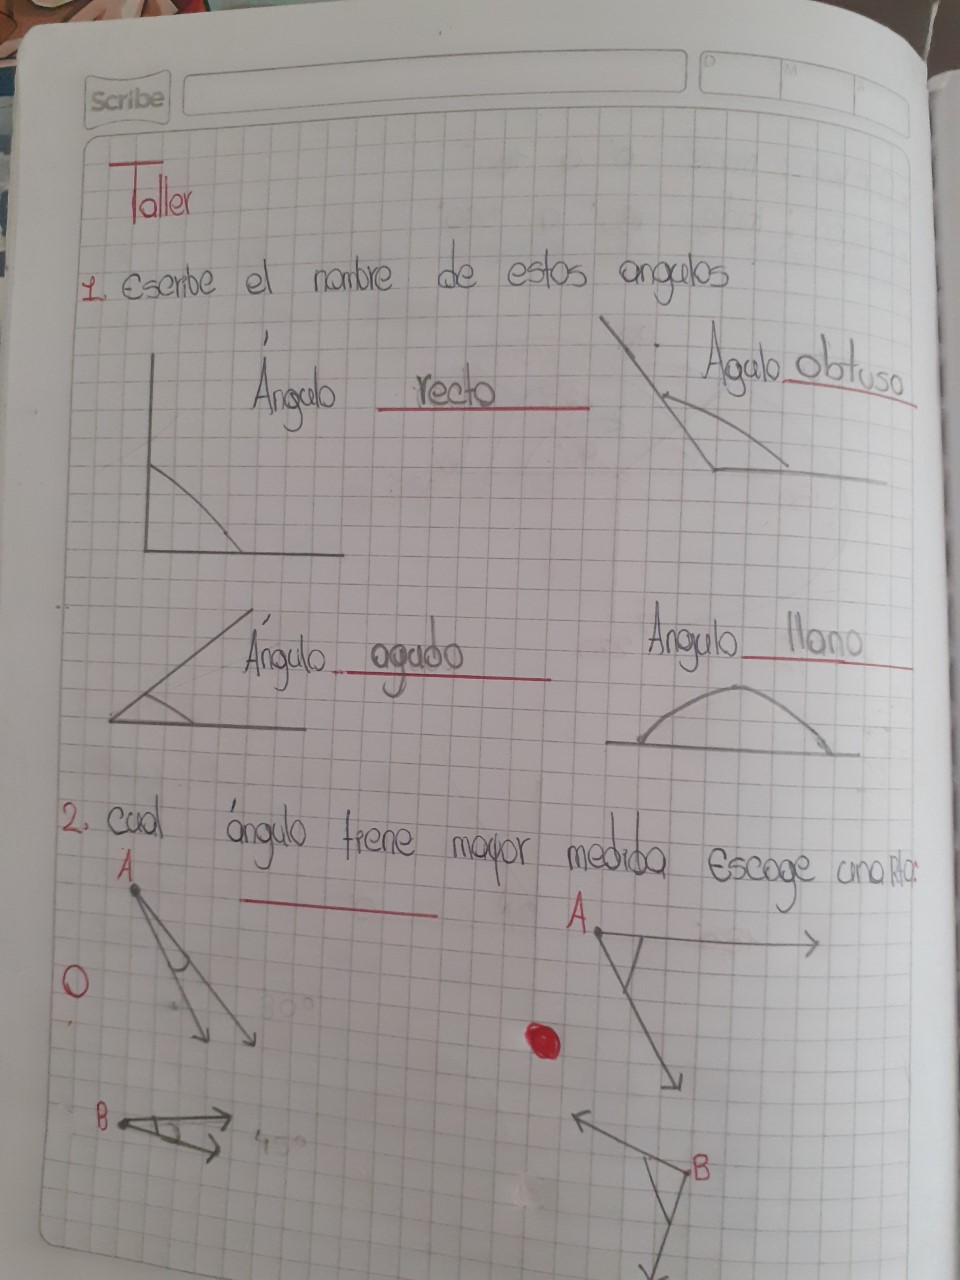 Scribe
D M
Taller
1. Escribe el nombre de estos angulos
Ángulo recto
Agulo obtuso
Ángulo agudo
Angulo llano
2. Cual ángulo tiene mayor medida Escoge una Rta:
A
A
30°
B 45°
B